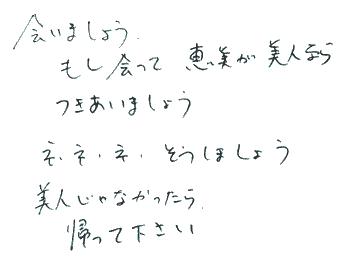 会いましょう.
もし会って 恵美が美人なら
つきあいましょう
ネ、ネ・ネ・そうしましょう
美人じゃなかったら.
帰って下さい